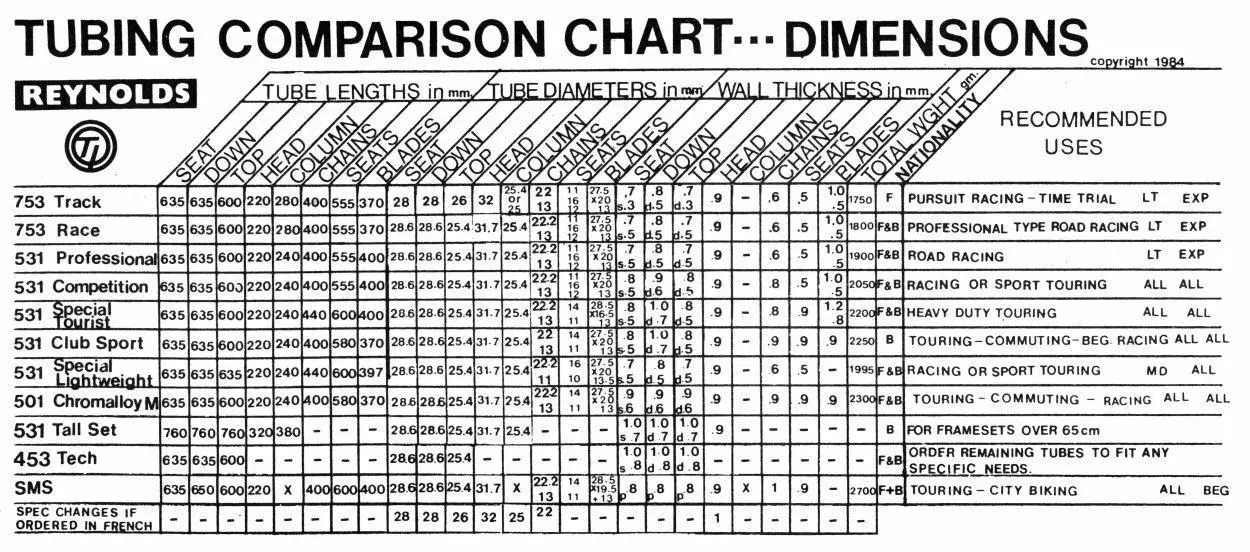 TUBING COMPARISON CHART... DIMENSIONS
copyright 1984
REYNOLDS
TUBE LENGTHS in mm. TUBE DIAMETERS in mm WALL THICKNESS in mm.
SEAT DOWN TOP HEAD COLUMN CHAINS SEATS BLADES SEAT DOWN TOP HEAD COLUMN CHAINS SEATS BLADES SEAT DOWN TOP HEAD COLUMN CHAINS SEATS BLADES TOTAL WGHT gm. NATIONALITY
RECOMMENDED
USES
753 Track 635 635 600 220 280 400 555 370 28 28 26 32 25.4 or 25 22 13 11 16 12 27.5 x20 13 .7 s.3 .8 d.5 .7 d.3 .9 - .6 .5 1.0 .5 1750 F PURSUIT RACING - TIME TRIAL LT EXP
753 Race 635 635 600 220 280 400 555 370 28.6 28.6 25.4 31.7 25.4 22.2 13 11 16 12 27.5 x20 13 .7 s.5 .8 d.5 .7 d.5 .9 - .6 .5 1.0 .5 1800 F&B PROFESSIONAL TYPE ROAD RACING LT EXP
531 Professional 635 635 600 220 240 400 555 400 28.6 28.6 25.4 31.7 25.4 22.2 13 11 16 12 27.5 x20 13 .7 s.5 .8 d.5 .7 d.5 .9 - .6 .5 1.0 .5 1900 F&B ROAD RACING LT EXP
531 Competition 635 635 603 220 240 400 600 400 28.6 28.6 25.4 31.7 25.4 22.2 13 11 16 12 27.5 x20 13 .8 s.5 .9 d.6 .8 d.5 .9 - .8 .5 1.0 .5 2050 F&B RACING OR SPORT TOURING ALL ALL
531 Special Tourist 635 635 600 220 240 440 600 400 28.6 28.6 25.4 31.7 25.4 22.2 13 14 11 28.5 x16.5 13 .8 s.5 1.0 d.7 .8 d.5 .9 - .8 .9 1.2 .8 2200 F&B HEAVY DUTY TOURING ALL ALL
531 Club Sport 635 635 600 220 240 400 580 370 28.6 28.6 25.4 31.7 25.4 22 13 14 11 27.5 x20 13 .8 s.5 1.0 d.7 .8 d.5 .9 - .9 .9 .9 2250 B TOURING-COMMUTING-BEG. RACING ALL ALL
531 Special Lightweight 635 635 635 220 240 440 600 397 28.6 28.6 25.4 31.7 25.4 22.2 11 16 10 27.5 x20 13.5 .7 s.5 .8 d.5 .7 d.5 .9 - .6 .5 - 1995 F&B RACING OR SPORT TOURING MD ALL
501 Chromalloy M 635 635 600 220 240 400 580 370 28.6 28.6 25.4 31.7 25.4 22.2 13 14 11 27.5 x20 13 .9 s.6 .9 d.6 .9 d.6 .9 - .9 .9 .9 2300 F&B TOURING - COMMUTING - RACING ALL ALL
531 Tall Set 760 760 760 320 380 - - - 28.6 28.6 25.4 31.7 25.4 - - - 1.0 s .7 1.0 d .7 1.0 d .7 .9 - - - - - B FOR FRAMESETS OVER 65cm
453 Tech 635 635 600 - 28.6 28.6 25.4 - 1.0 s .8 1.0 d .8 1.0 d .8 F&B ORDER REMAINING TUBES TO FIT ANY SPECIFIC NEEDS.
SMS 635 650 600 220 X 400 600 400 28.6 28.6 25.4 31.7 X 22.2 13 14 11 28.5 x19.5 +13 .8 p .8 p .8 p .9 X 1 .9 - 2700 F+B TOURING - CITY BIKING ALL BEG
SPEC CHANGES IF ORDERED IN FRENCH - - - - - - - - 28 28 26 32 25 22 - - - - - 1 - - - - -